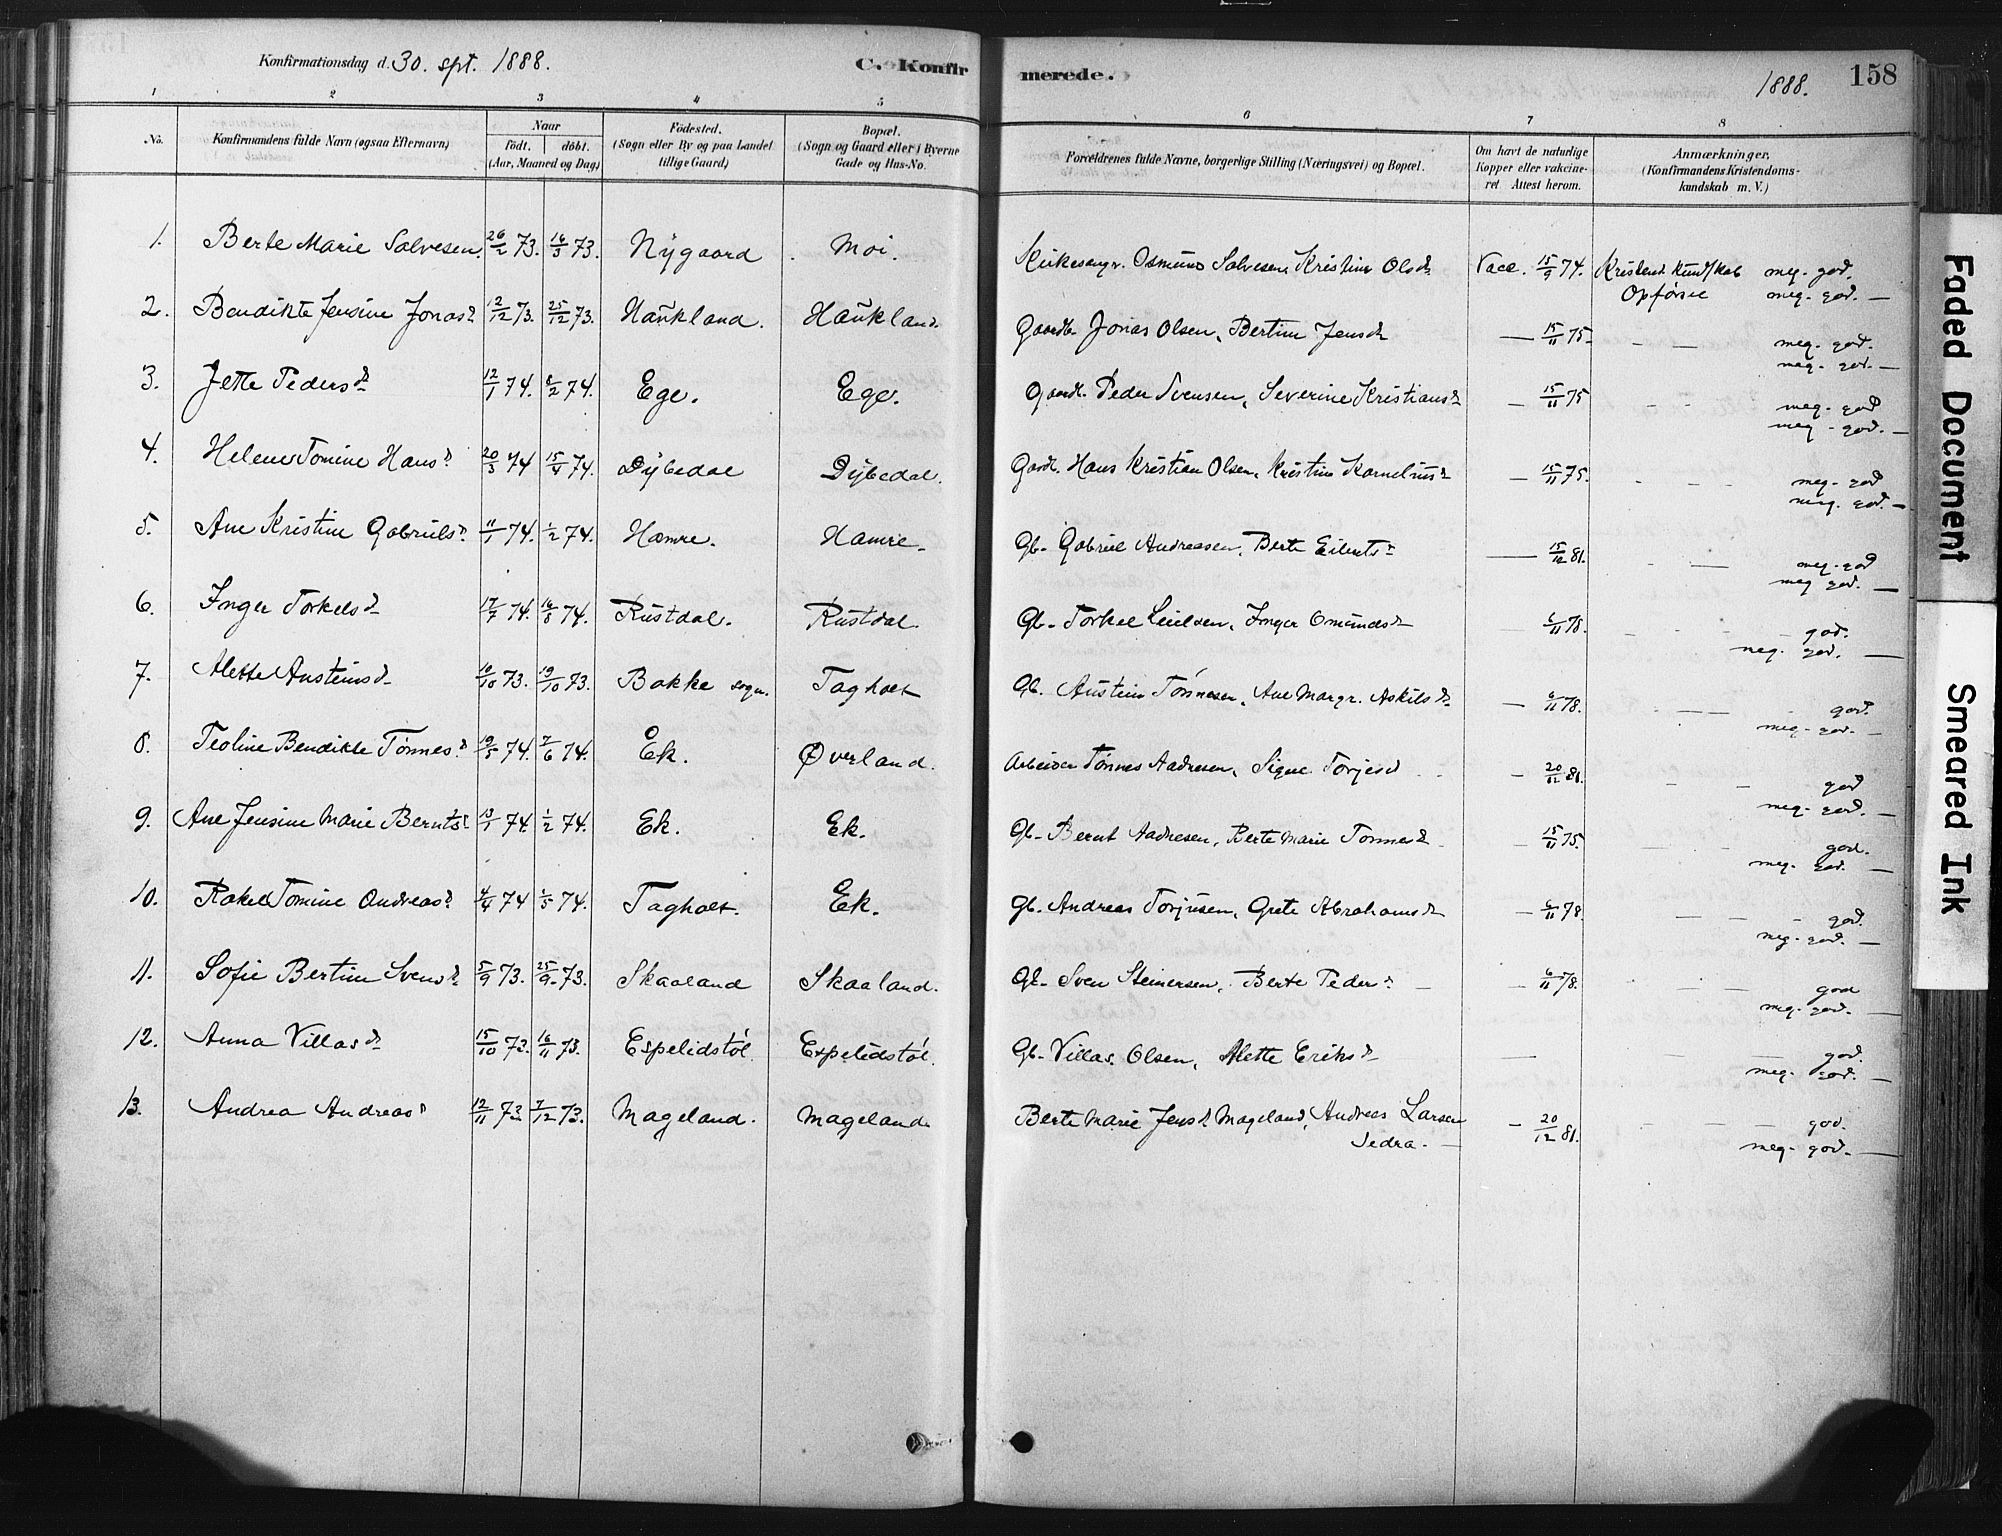 Konfirmationsdag d. 30. spt. 1888.
C. Konfirmerede.
1888.
158
1 2 3 4 5 6 7 8
No.
Konfirmandens fulde Navn (ogsaa Efternavn)
Naar
födt. döbt.
(Aar, Maaned og Dag)
Födested.
(Sogn eller By og paa Landet
tillige Gaard)
Bopæl.
(Sogn og Gaard eller i Byerne
Gade og Hus-No.
Forældrenes fulde Navne, borgerlige Stilling (Næringsvei) og Bopæl.
Om havt de naturlige
Kopper eller vakcine-
ret Attest herom.
Anmærkninger.
(Konfirmandens Kristendoms-
kundskab m. V.)
1. Berte Marie Salvesen 26/2 73. 16/3 73. Nygaard Moi. Kirkesangr. Osmund Salvesen, Kristine Olsd. Vacc. 15/9 74. Kristend. Kundskab meg. god.
Opførsel meg. god. —
2. Bendikte Jensine Jonasd. 12/12 73. 25/12 73. Haukland. Haukland. Gaardb. Jonas Olsen, Bertine Jensd. — 15/11 75. - — meg. god.
meg. god. —
3. Jette Pedersd. 12/1 74. 8/2 74. Ege. Ege. Gaardb. Peder Svensen, Severine Kristiansd. — 15/11 75 - - meg. god
meg. god. —
4. Helene Tomine Hansd. 20/3 74 15/4 74. Dybedal Dybedal. Gaardb. Hans Kristian Olsen, Kristine Korneliusd. — 15/11 75. - - - meg. god
meg. god. —
5. Ane Kristine Gabrielsd. 11/1 74. 1/2 74. Hamre. Hamre. Gb. Gabriel Andreasen, Berte Eilertsd. — 15/12 81. - — meg. god
meg god. —
6. Inger Torkelsd. 17/7 74. 16/8 74. Rustdal. Rustdal. Gb. Torkel Leielsen, Inger Omundsd. — 6/11 78. - - - god.
meg. god. —
7. Alette Austeinsd. 10/10 73. 19/10 73. Bakke sogn. Tagholt Gb. Austein Tønnesen, Ane Margr. Askilsd. — 6/11 78. - — - god.
meg. god. —
8. Teoline Bendikte Tønnesd. 19/5 74. 7/6 74. Ek. Øverland. Arbeider Tønnes Aadnesen, Signe Torjesd. — 20/12 81. - - god
meg. god. —
9. Ane Jensine Marie Berntsd. 13/1 74. 1/2 74. Ek. Ek. Gb. Bernt Aadnesen, Berte Marie Tønnesd. — 15/11 75. - - god.
meg. god. —
10. Rakel Tomine Andreasd. 4/4 74 1/5 74. Tagholt. Ek. Gb. Andreas Torjusen, Grete Abrahamsd. — 6/11 78. — — - god.
meg. god. —
11. Sofie Bertine Svensd. 5/9 73. 25/9 73. Skaaland Skaaland. Gb. Sven Steinersen, Berte Pedersd. — 6/11 78. - — — god
meg. god. —
12. Anna Villasd. 15/10 73. 16/11 73. Espelidstøl. Espelidstøl. Gb. Villas Olsen, Alette Eriksd. — — — god.
meg. god. —
13. Andrea Andreasd. 12/11 73 7/12 73. Mageland. Mageland. Berte Marie Jensd. Mageland, Andreas Larsen — 20/12 81. - — — god.
Sedra. — meg. god. —
Faded Document
Smeared Ink